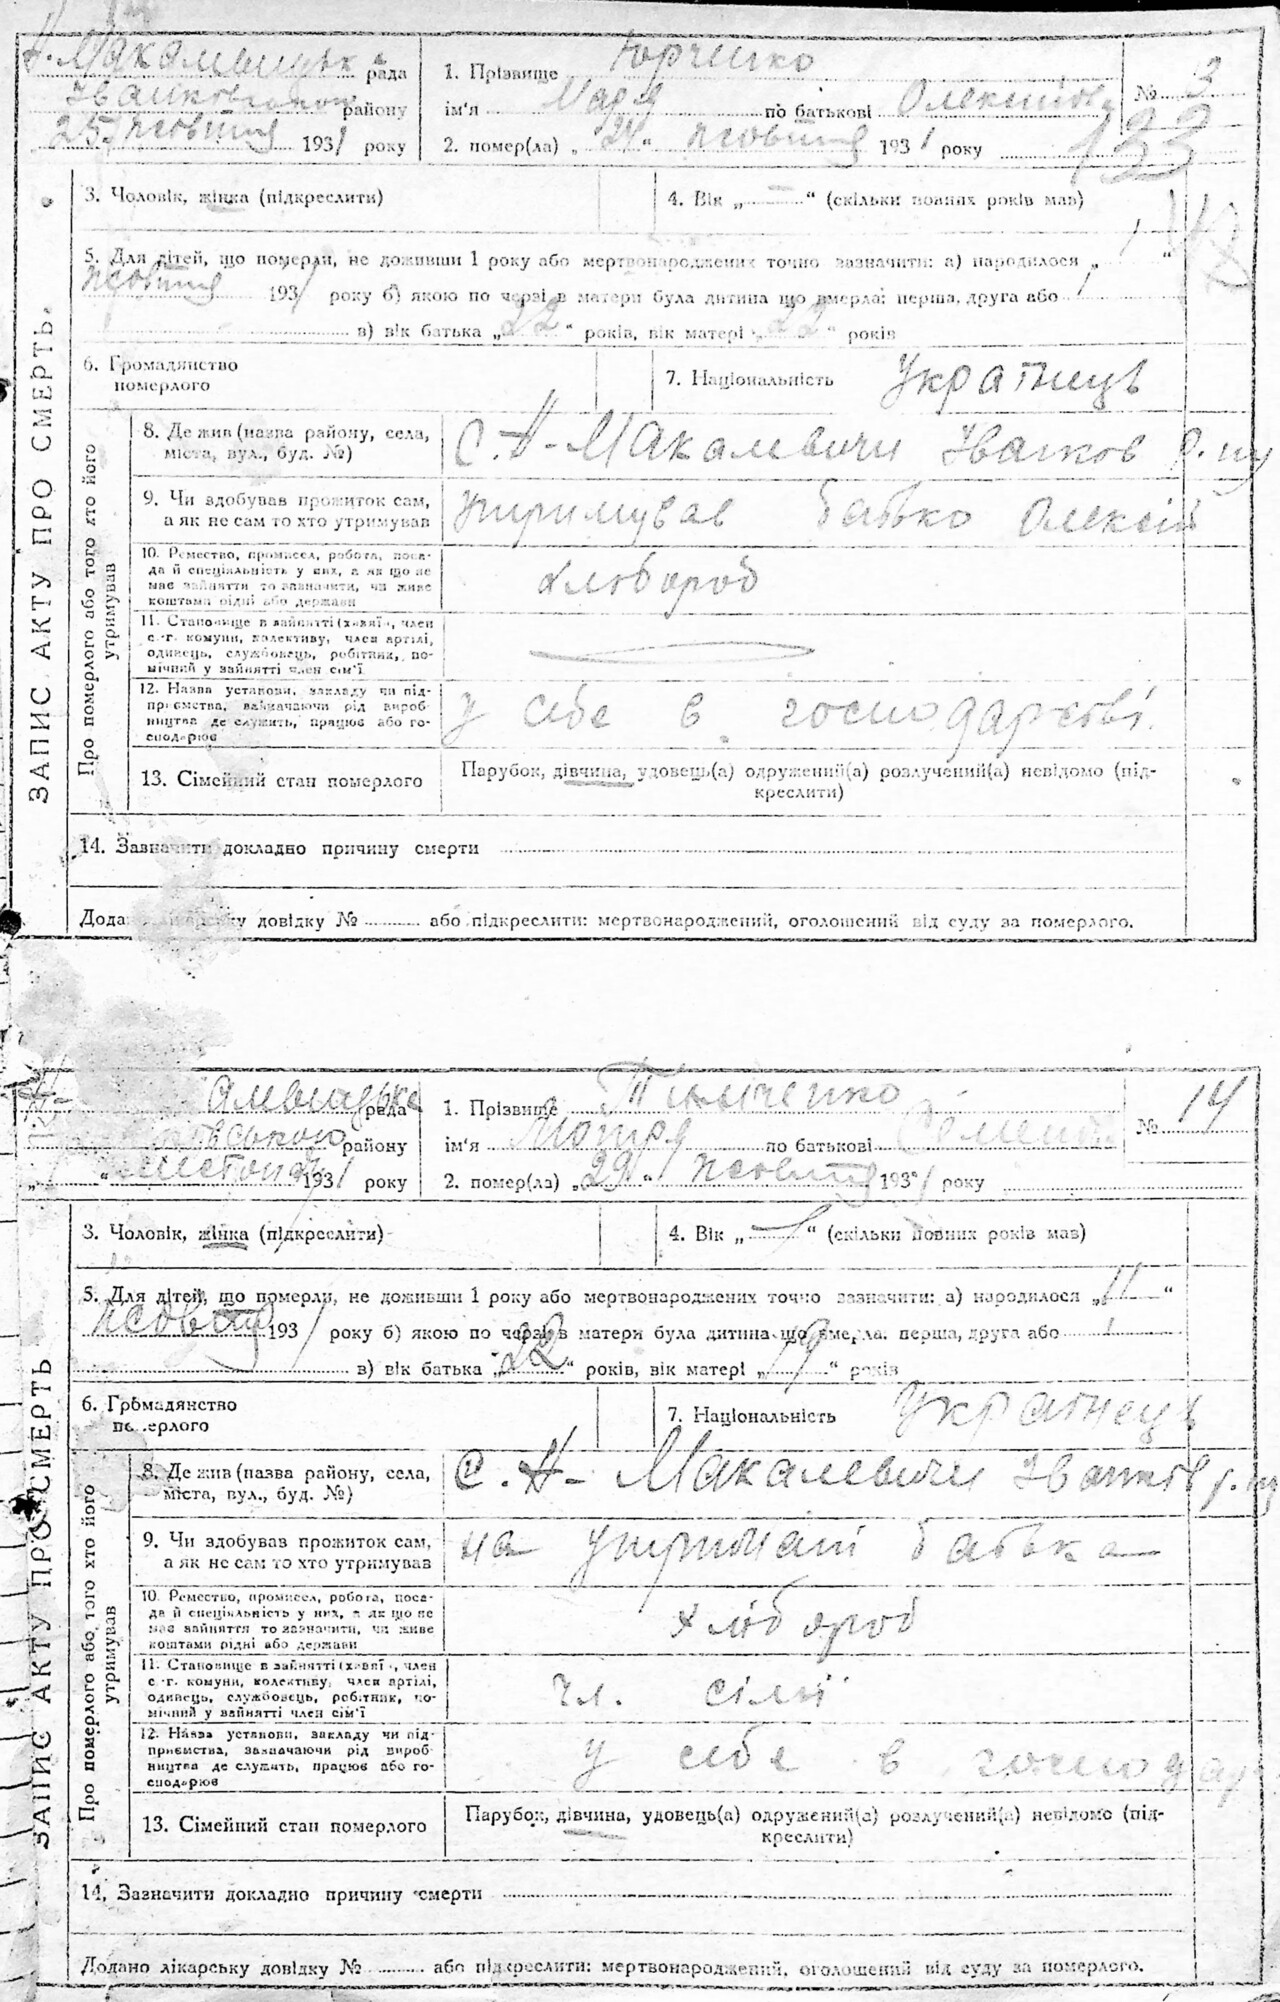 Н. Макалевицька рада
Іванковського району
25 жовтня 1931 року
1. Прізвище Юрченко
ім'я Марія по батькові Олексіївна
2. помер(ла) „24“ жовтня 1931 року
№ 13
133
ЗАПИС АКТУ ПРО СМЕРТЬ.
3. Чоловік, жінка (підкреслити)
4. Вік „ “ (скільки повних років мав)
5. Для дітей, що померли, не доживши 1 року або мертвонароджених точно зазначити: а) народилося „1“
жовтня 1931 року б) якою по черзі в матери була дитина що вмерла: перша, друга або 1
в) вік батька „22“ років, вік матері „22“ років
6. Громадянство
померлого
7. Національність Українець
Про померлого або того хто його
утримував
8. Де жив (назва району, села,
міста, вул., буд. №)
С. Н-Макалевичи Іванков р.ну
9. Чи здобував прожиток сам,
а як не сам то хто утримував
утримував батько Олексій
10. Ремество, промисел, робота, поса-
да й спеціяльність у них, а як що не
має зайняття то зазначити, чи живе
коштами рідні або держави
хлібороб
11. Становище в зайнятті (хазяї, член
с.-г. комуни, колективу, член артілі,
одинець, службовець, робітник, по-
мічний у зайнятті член сім'ї
12. Назва установи, закладу чи під-
приємства, зазначаючи рід вироб-
ництва де служить, працює або го-
сподарює
у себе в господарстві.
13. Сімейний стан померлого
Парубок, дівчина, удовець(а) одружений(а) розлучений(а) невідомо (під-
креслити)
14. Зазначити докладно причину смерти
Додано лікарську довідку № або підкреслити: мертвонароджений, оголошений від суду за померлого.
Н- алевицька рада
ковського району
„1“ листопада 1931 року
1. Прізвище Тимченко
ім'я Мотря по батькові Семен
2. помер(ла) „29“ жовтня 1931 року
№ 14
ЗАПИС АКТУ ПРО СМЕРТЬ
3. Чоловік, жінка (підкреслити)
4. Вік „ “ (скільки повних років мав)
5. Для дітей, що померли, не доживши 1 року або мертвонароджених точно зазначити: а) народилося „11“
жовтня 1931 року б) якою по черзі в матери була дитина що вмерла: перша, друга або 1
в) вік батька „22“ років, вік матері „19“ років
6. Громадянство
померлого
7. Національність Українець
Про померлого або того хто його
утримував
8. Де жив (назва району, села,
міста, вул., буд. №)
С. Н- Макалевичи Іванків р.ну
9. Чи здобував прожиток сам,
а як не сам то хто утримував
на утриманні батька
10. Ремество, промисел, робота, поса-
да й спеціяльність у них, а як що не
має зайняття то зазначити, чи живе
коштами рідні або держави
хлібороб
11. Становище в зайнятті (хазяї, член
с.-г. комуни, колективу, член артілі,
одинець, службовець, робітник, по-
мічний у зайнятті член сім'ї
чл. сімї
12. Назва установи, закладу чи під-
приємства, зазначаючи рід вироб-
ництва де служить, працює або го-
сподарює
у себе в господар
13. Сімейний стан померлого
Парубок, дівчина, удовець(а) одружений(а) розлучений(а) невідомо (під-
креслити)
14. Зазначити докладно причину смерти
Додано лікарську довідку № або підкреслити: мертвонароджений, оголошений від суду за померлого.